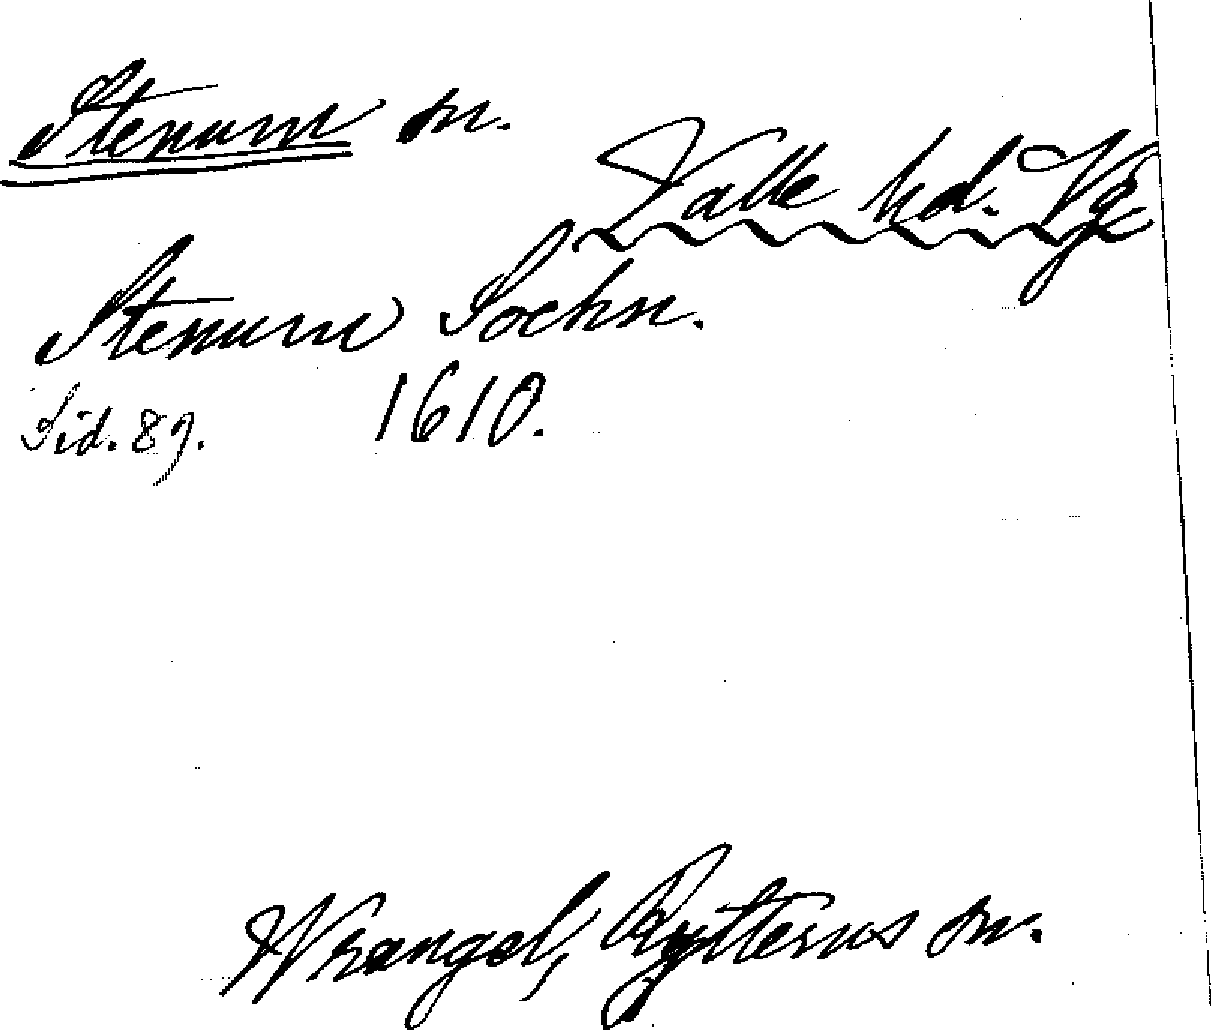 Stenum sn.
Valle hd. Vg.
Stenum Sochn.
Sid. 89. 1610.
Wrangel, Rytterns sn.